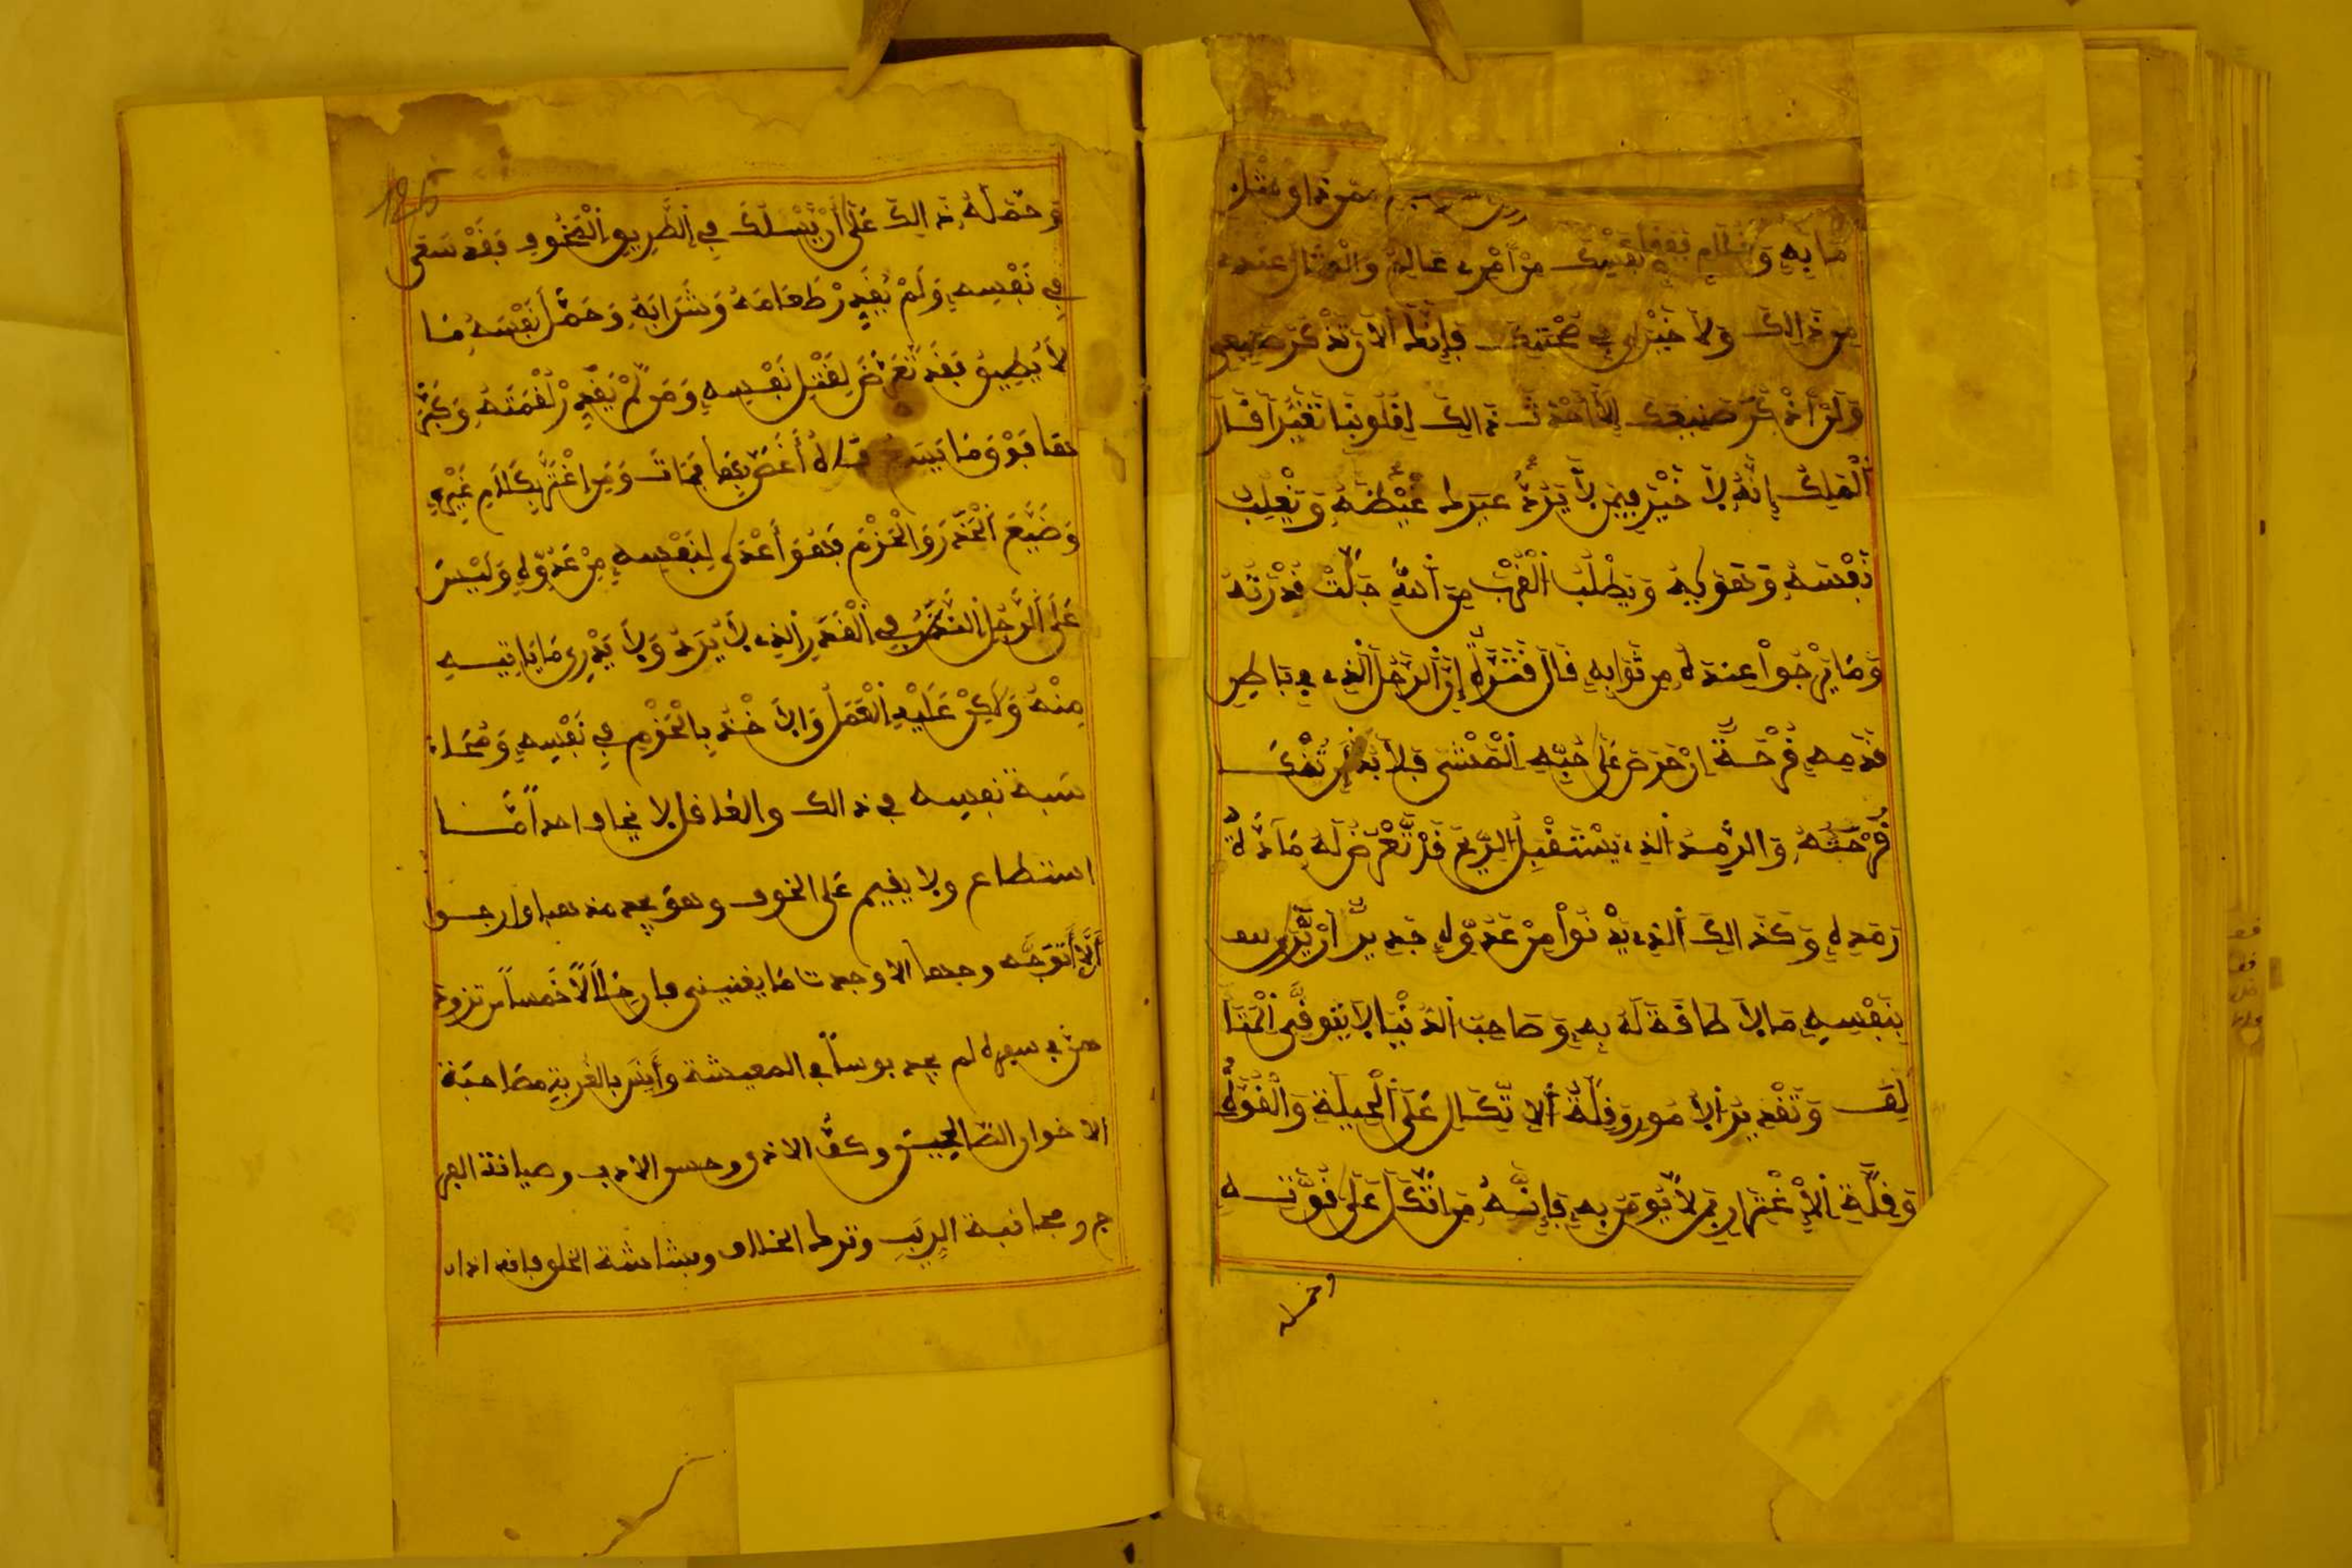 مابه و
من ذالك ولا خير لي في صحبتك فإنك الان تذكر صنيعي
ولن أذكر صنيعك إلا أحدث ذالك لقلوبنا تغيرا قال
الملك إنه لا خير فيمن لا يرد غيظه ويغلب
نفسه وتقويه ويطلب القرب من الله جلت قدرته
وما يرجوا عنده من ثوابه قال قنزة إن الرجل الذي في باطن
قدمه قرحة إن حرص على حبه المشي فلا بد أن تنكى
قرحته والرمد الذي يستقبل الريح قد تعرض له
رمده وكذالك الذي يدنوا من عدوه جدير أن
بنفسه ما لا طاقة له به وصاحب الدنيا لا يتوقى المتا
لف وتقدير الأمور وقلة ألا تكال على الحيلة والقوة
وقلة الاغترار بمن لا يومن به فإنه من اتكل على قوته
وحمله
125
وحمله ذالك على أن يسلك في الطريق المخوف فقد سعى
في نفسه ولم يقدر طعامه وشرابه وحمل نفسه ما
لا يطيق فقد تعرض لقتل نفسه ومن لم يقدر لقمته وكبر
ها فوق ما يسع فاه أغص بها فمات ومن اغتر بكلام غيره
وضيع الحذر والحزم فهو أعدى لنفسه من عدوه وليس
على الرجل النظر في القدر الذي لا يرد ولا يدري ما ياتيه
منه ولكن عليه العمل والاخذ بالحزم في نفسه ومحا
سبة نفسه في ذالك والعاقل لا يخاف احدا ما
استطاع ولا يقيم على الخوف وهو يجد مذهبا وارجوا
ألا أتوجه وجها الا وجدت ما يغنيني فان خلالا خمسا من تزود
هن في سفره لم يجد بوسا في المعيشة وأنس بالغربة مصاحبة
الاخوان الصالحين وكف الاذى وحسن الادب وصيانة الفر
ج ومجانبة الريب وترك الخلاف وبشاشة الخلق فانه اذا